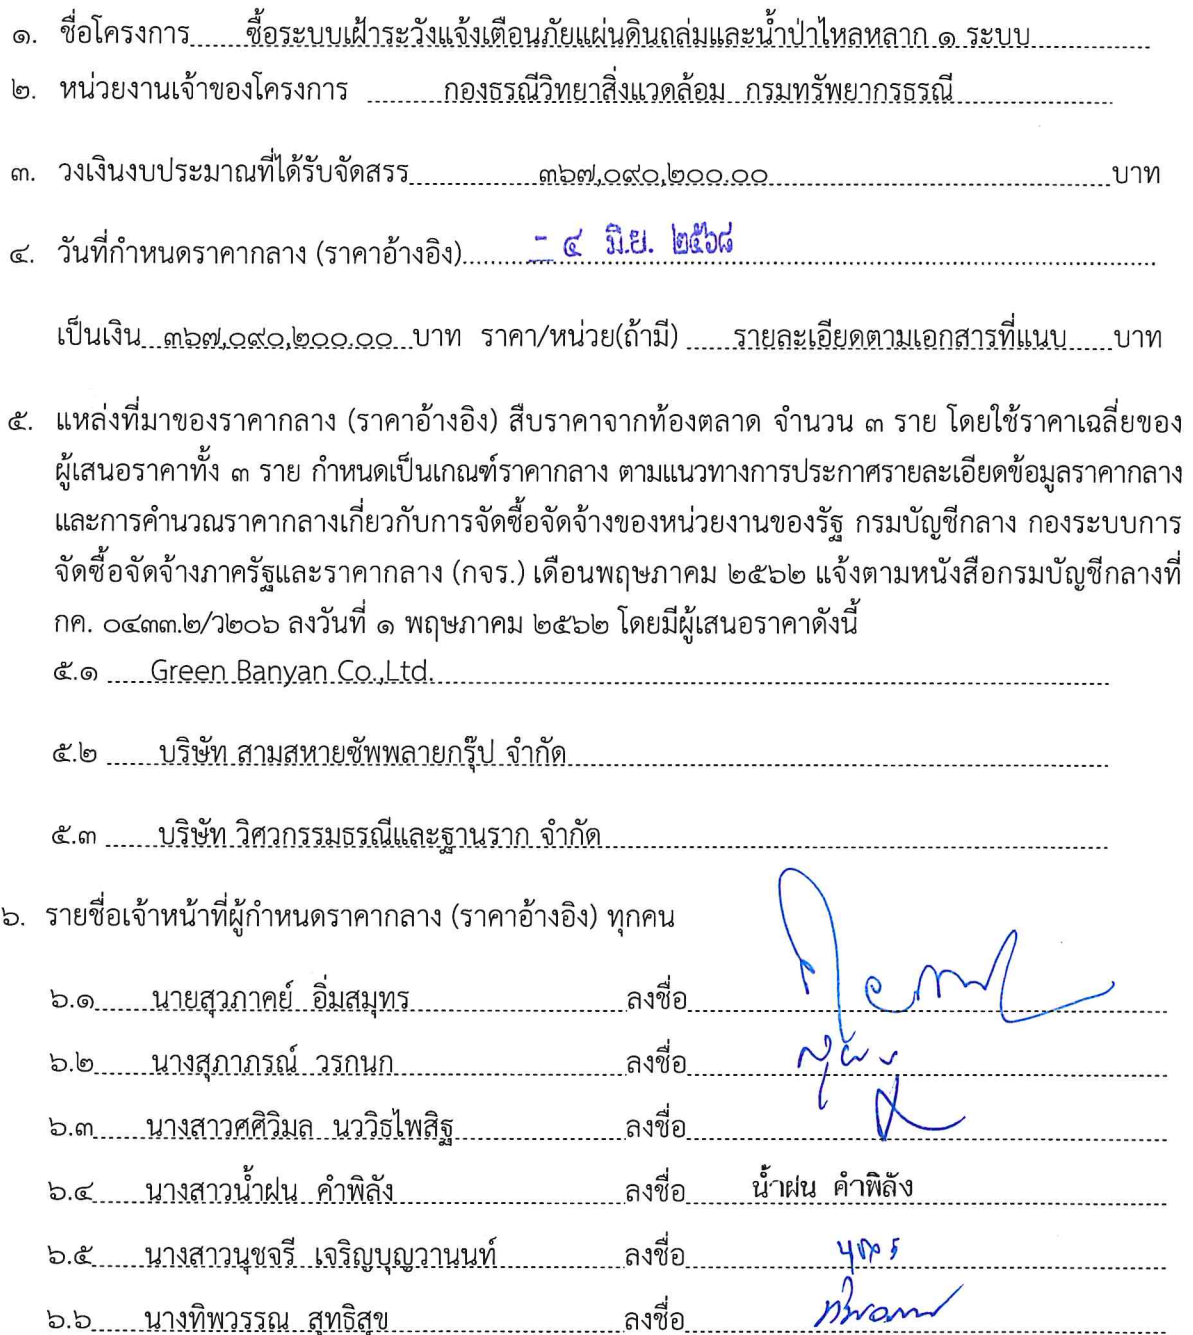 ๑. ชื่อโครงการ ซื้อระบบเฝ้าระวังแจ้งเตือนภัยแผ่นดินถล่มและน้ำป่าไหลหลาก ๑ ระบบ
๒. หน่วยงานเจ้าของโครงการ กองธรณีวิทยาสิ่งแวดล้อม กรมทรัพยากรธรณี
๓. วงเงินงบประมาณที่ได้รับจัดสรร ๓๖๗,๐๙๐,๒๐๐.๐๐ บาท
๔. วันที่กำหนดราคากลาง (ราคาอ้างอิง) - ๔ มิ.ย. ๒๕๖๘
เป็นเงิน ๓๖๗,๐๙๐,๒๐๐.๐๐ บาท ราคา/หน่วย(ถ้ามี) รายละเอียดตามเอกสารที่แนบ บาท
๕. แหล่งที่มาของราคากลาง (ราคาอ้างอิง) สืบราคาจากท้องตลาด จำนวน ๓ ราย โดยใช้ราคาเฉลี่ยของ
ผู้เสนอราคาทั้ง ๓ ราย กำหนดเป็นเกณฑ์ราคากลาง ตามแนวทางการประกาศรายละเอียดข้อมูลราคากลาง
และการคำนวณราคากลางเกี่ยวกับการจัดซื้อจัดจ้างของหน่วยงานของรัฐ กรมบัญชีกลาง กองระบบการ
จัดซื้อจัดจ้างภาครัฐและราคากลาง (กจร.) เดือนพฤษภาคม ๒๕๖๒ แจ้งตามหนังสือกรมบัญชีกลางที่
กค. ๐๔๓๓.๒/ว๒๐๖ ลงวันที่ ๑ พฤษภาคม ๒๕๖๒ โดยมีผู้เสนอราคาดังนี้
๕.๑ Green Banyan Co.,Ltd.
๕.๒ บริษัท สามสหายซัพพลายกรุ๊ป จำกัด
๕.๓ บริษัท วิศวกรรมธรณีและฐานราก จำกัด
๖. รายชื่อเจ้าหน้าที่ผู้กำหนดราคากลาง (ราคาอ้างอิง) ทุกคน
๖.๑ นายสุวภาคย์ อิ่มสมุทร ลงชื่อ
๖.๒ นางสุภาภรณ์ วรกนก ลงชื่อ
๖.๓ นางสาวศศิวิมล นววิธไพสิฐ ลงชื่อ
๖.๔ นางสาวน้ำฝน คำพิลัง ลงชื่อ น้ำฝน คำพิลัง
๖.๕ นางสาวนุชจรี เจริญบุญวานนท์ ลงชื่อ
๖.๖ นางทิพวรรณ สุทธิสุข ลงชื่อ